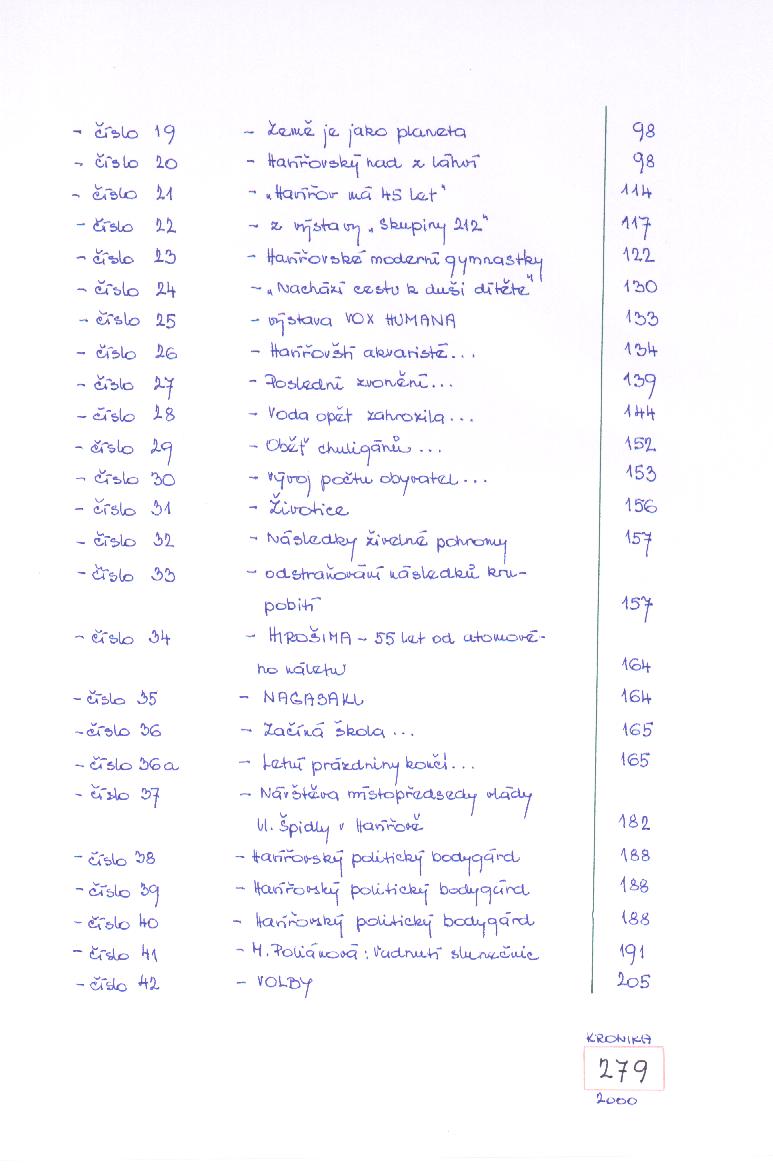 - číslo 19 - Země je jako planeta 98
- číslo 20 - Havířovský had z láhví 98
- číslo 21 - „Havířov má 45 let" 114
- číslo 22 - z výstavy „Skupiny 212" 117
- číslo 23 - Havířovské moderní gymnastky 122
- číslo 24 - „Nachází cestu k duši dítěte" 130
- číslo 25 - výstava VOX HUMANA 133
- číslo 26 - Havířovští akvaristé... 134
- číslo 27 - Poslední zvonění... 139
- číslo 28 - Voda opět zahrozila... 144
- číslo 29 - Oběť chuligánů... 152
- číslo 30 - Vývoj počtu obyvatel... 153
- číslo 31 - Životice 156
- číslo 32 - Následky živelné pohromy 157
- číslo 33 - odstraňování následků kru-
pobití 157
- číslo 34 - HIROŠIMA - 55 let od atomové-
ho náletu 164
- číslo 35 - NAGASAKI 164
- číslo 36 - Začíná škola... 165
- číslo 36a - Letní prázdniny končí... 165
- číslo 37 - Návštěva místopředsedy vlády
Vl. Špidly v Havířově 182
- číslo 38 - Havířovský politický bodygárd 188
- číslo 39 - Havířovský politický bodygárd 188
- číslo 40 - Havířovský politický bodygárd 188
- číslo 41 - H. Poliánová: Vadnutí slunečnic 191
- číslo 42 - VOLBY 205
KRONIKA
279
2000